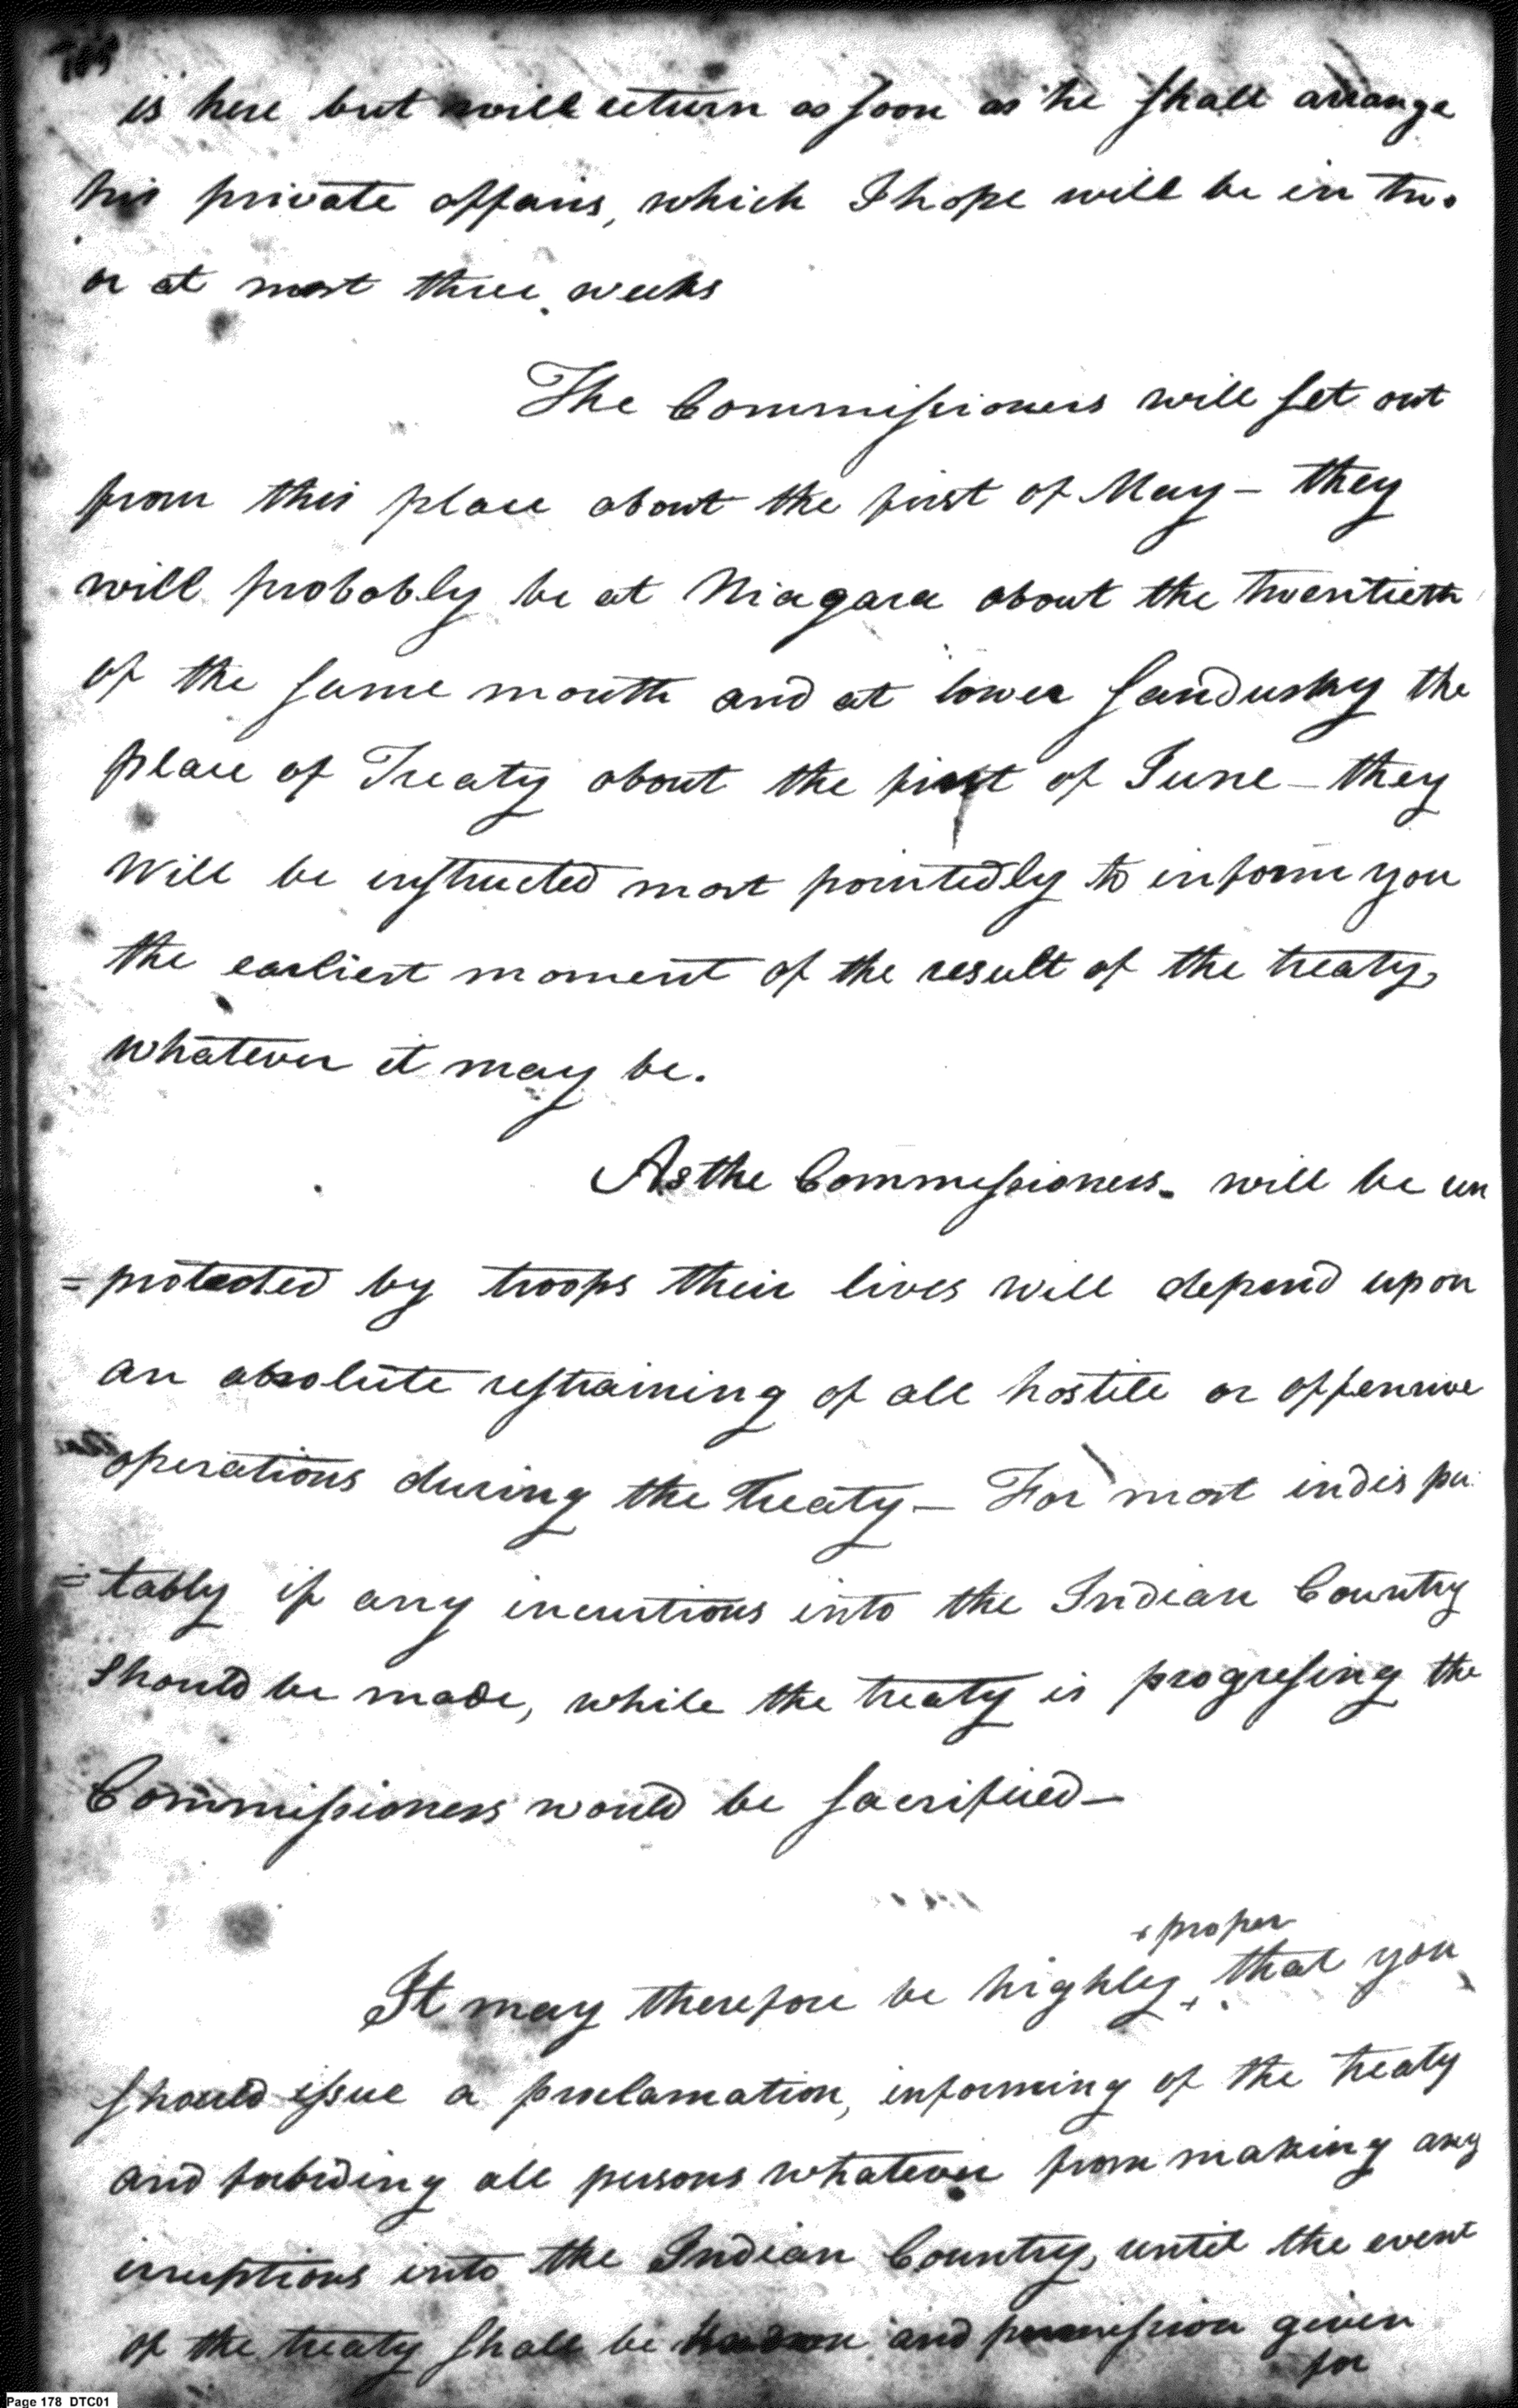 is here but will return as soon as he shall arrange
his private affairs, which I hope will be in two
or at most three weeks
The Commissioners will set out
from this place about the first of May - they
will probably be at Niagara about the twentieth
of the same month and at lower Sandusky the
place of Treaty about the first of June - they
will be instructed most pointedly to inform you
the earliest moment of the result of the treaty,
whatever it may be.
As the Commissioners will be un
=protected by troops their lives will depend upon
an absolute restraining of all hostile or offensive
operations during the Treaty - For most indispu
=tably if any incurtions into the Indian Country
should be made, while the treaty is progressing the
Commissioners would be sacrificed -
+ proper
It may therefore be highly + that you
should issue a proclamation, informing of the treaty
and forbiding all persons whatever from making any
irruptions into the Indian Country, until the event
of the treaty shall be and permission given
for
Page 178 DTC01